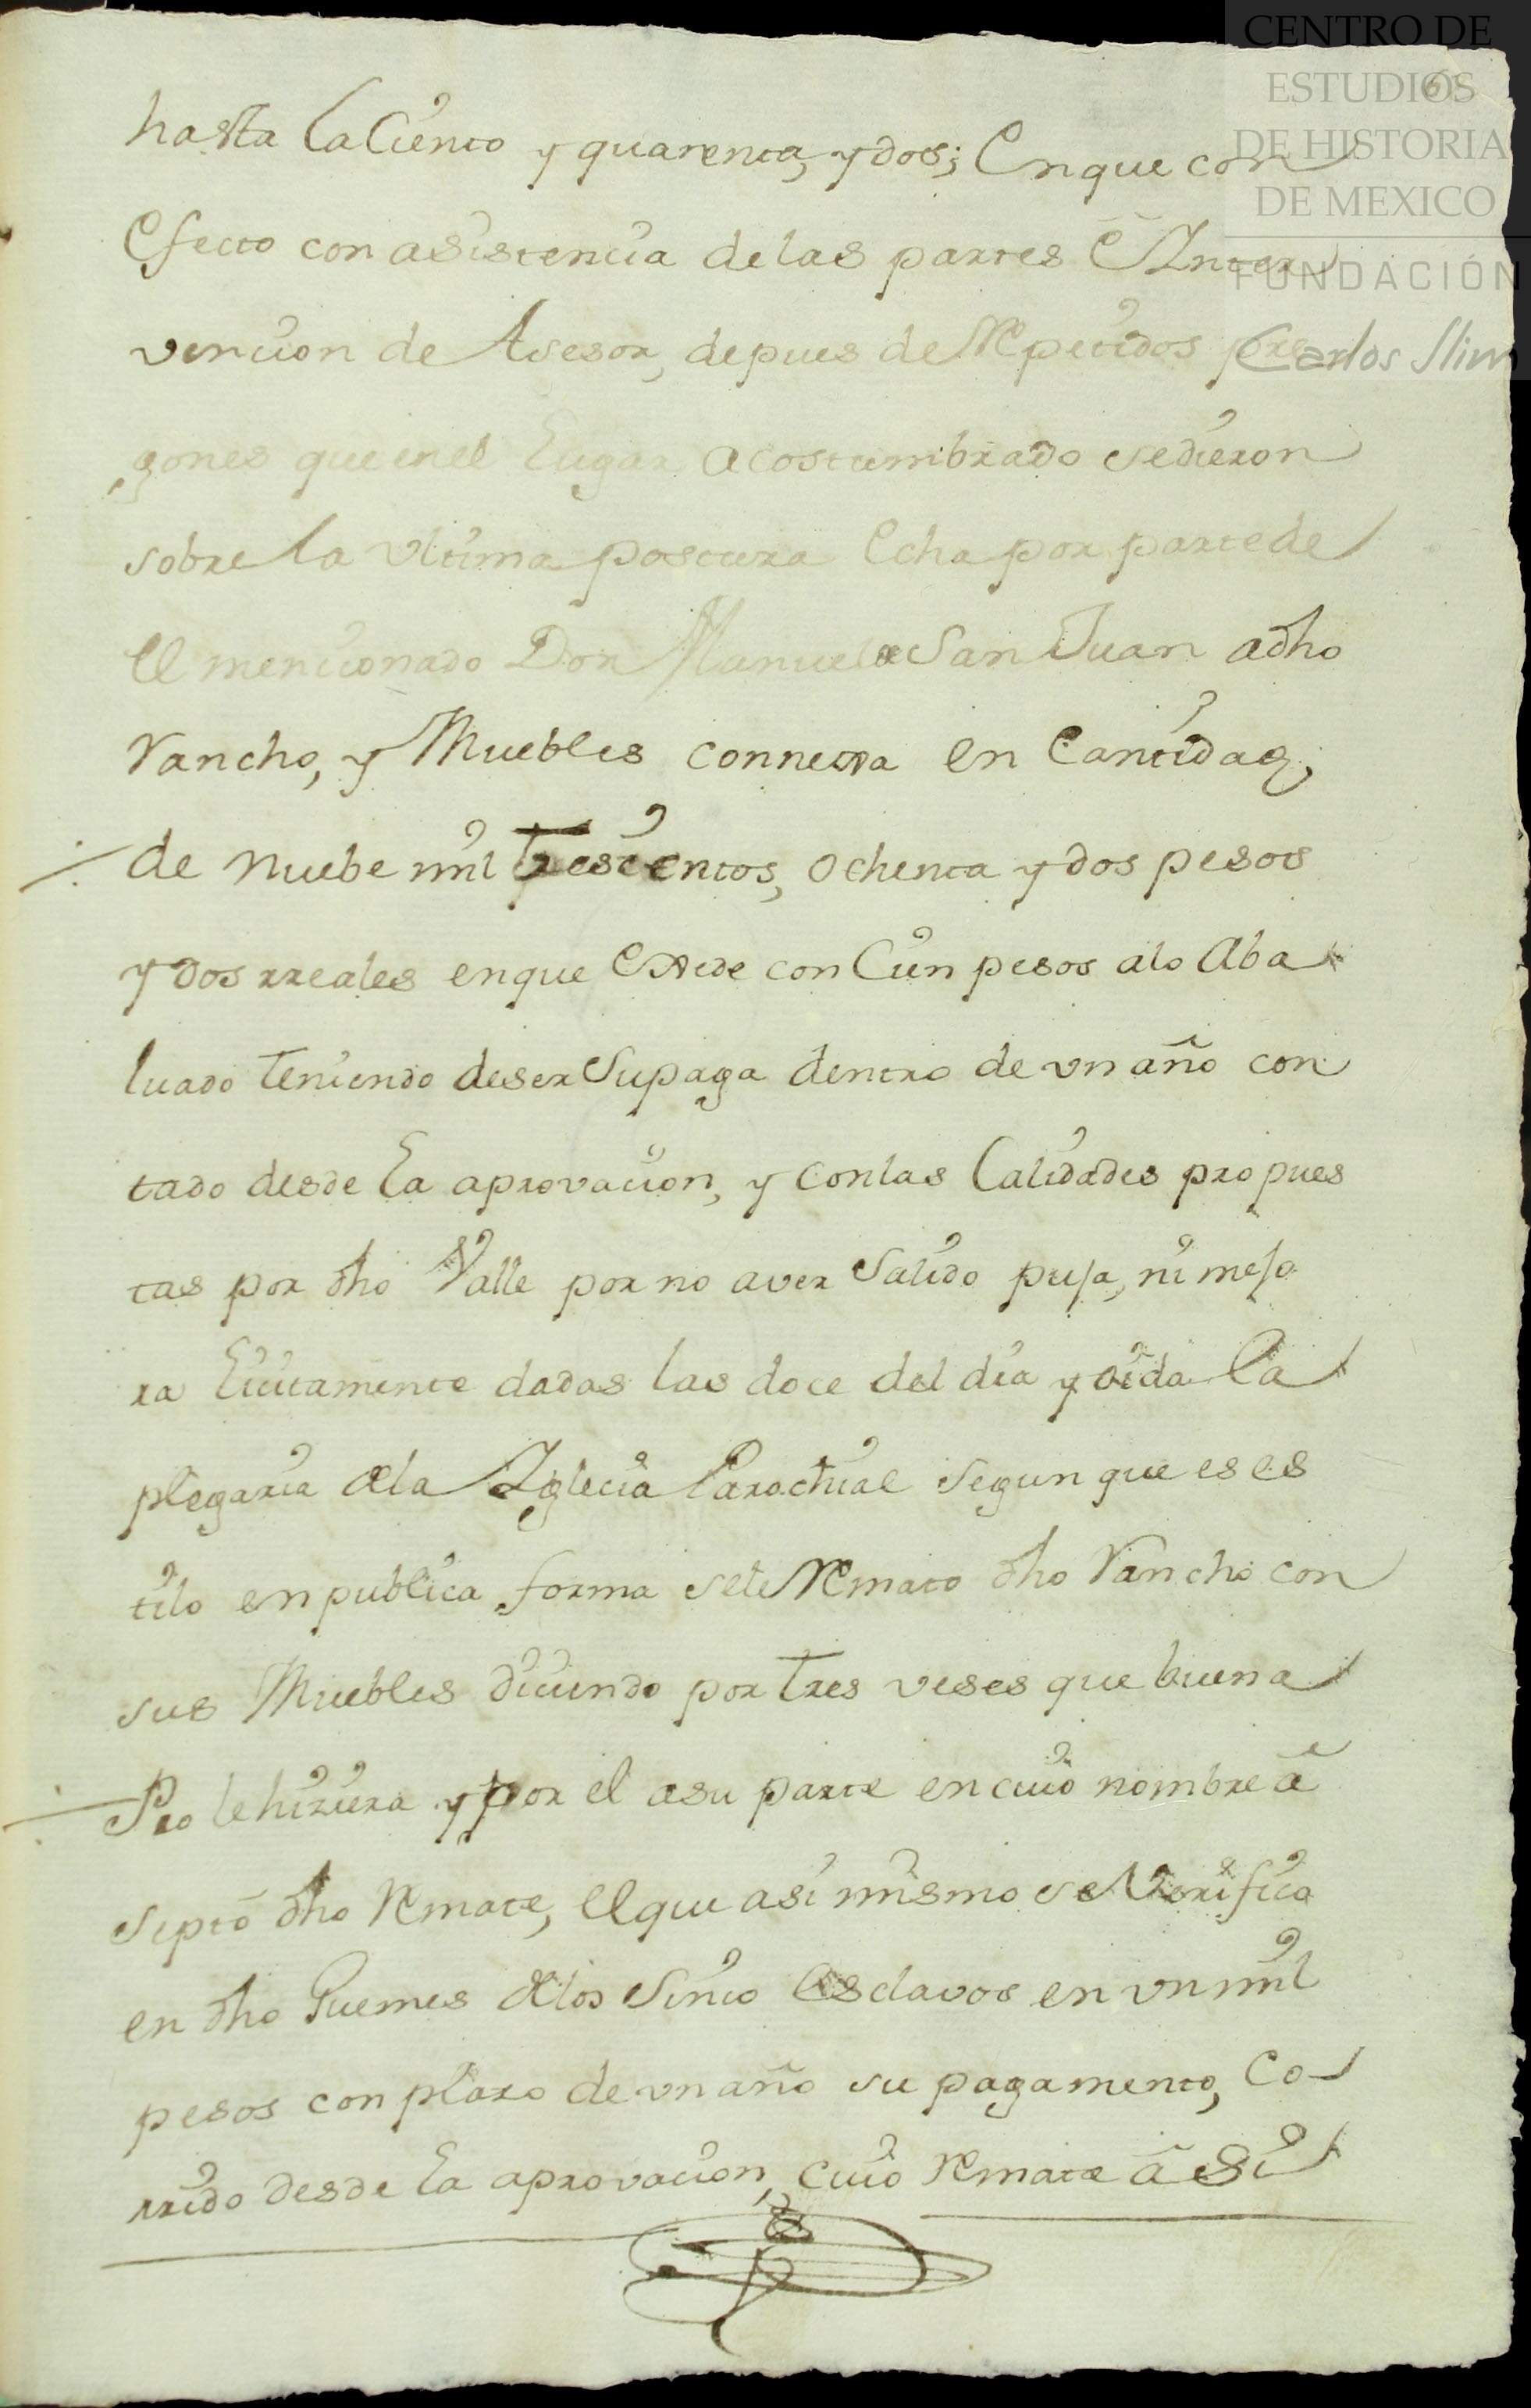 CENTRO DE
ESTUDIOS
DE HISTORIA
DE MEXICO
FUNDACIÓN
Carlos Slim
hasta la Ciento y quarenta, y dos; En que con
Efecto con asistencia de las partes é Inter
vencion de Asesor, depues de Repetidos pre
gones que en el Lugar acostumbrado se dieron
sobre la ultima postura Echa por parte de
el mencionado Don Manuel de San Juan a dho
Rancho, y Muebles connecta en Cantidad,
de nuebe mil trescientos, ochenta y dos pesos
y dos rreales en que Exede con Cien pesos alo Aba
luado teniendo de ser Su paga dentro de un año con
tado desde la aprovacion, y con las Calidades propues
tas por dho Valle por no aver Salido puja, ni mejo
ra Licitamente dadas las doce del dia y oida la
plegaria de la Iglecia Parochial segun que es es
tilo en publica forma se le Remato dho Rancho con
sus Muebles diciendo por tres veses que buena
Pro le hiziera y por el a su parte en cuio nombre a
septó dho Remate, el que asi mismo se Verifica
en dho Guemes de los Sinco Esclavos en un mil
pesos con plazo de un año su pagamento, Co
rrido desde la aprovacion, cuio Remate á Si